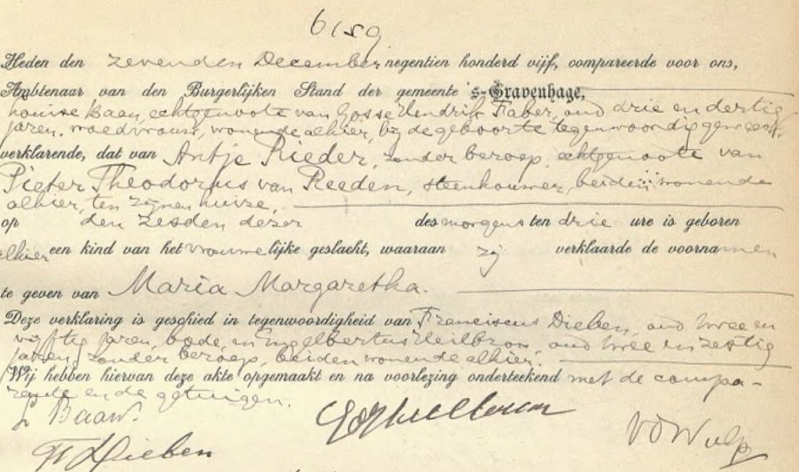 6159
Heden den zevenden December negentien honderd vijf, compareerde voor ons,
Ambtenaar van den Burgerlijken Stand der gemeente 's-Gravenhage,
Louise Baan, echtgenoote van Gosse Hendrik Faber, oud drie en dertig
jaren, vroedvrouw, wonende alhier, bij de geboorte tegenwoordig geweest,
verklarende, dat van Antje Rieder, zonder beroep, echtgenoote van
Pieter Theodorus van Reeden, steenhouwer, beiden wonende
alhier, ten zijnen huize,
op den zesden dezer des morgens ten drie ure is geboren
alhier een kind van het vrouwelijke geslacht, waaraan zij verklaarde de voornamen
te geven van Maria Margaretha.
Deze verklaring is geschied in tegenwoordigheid van Franciscus Dieben, oud twee en
vijftig jaren, bode, en Engelbertus Heilbron, oud twee en zestig
jaren, zonder beroep, beiden wonende alhier.
Wij hebben hiervan deze akte opgemaakt en na voorlezing onderteekend met de compa-
rente en de getuigen.
L Baan.
Dieben